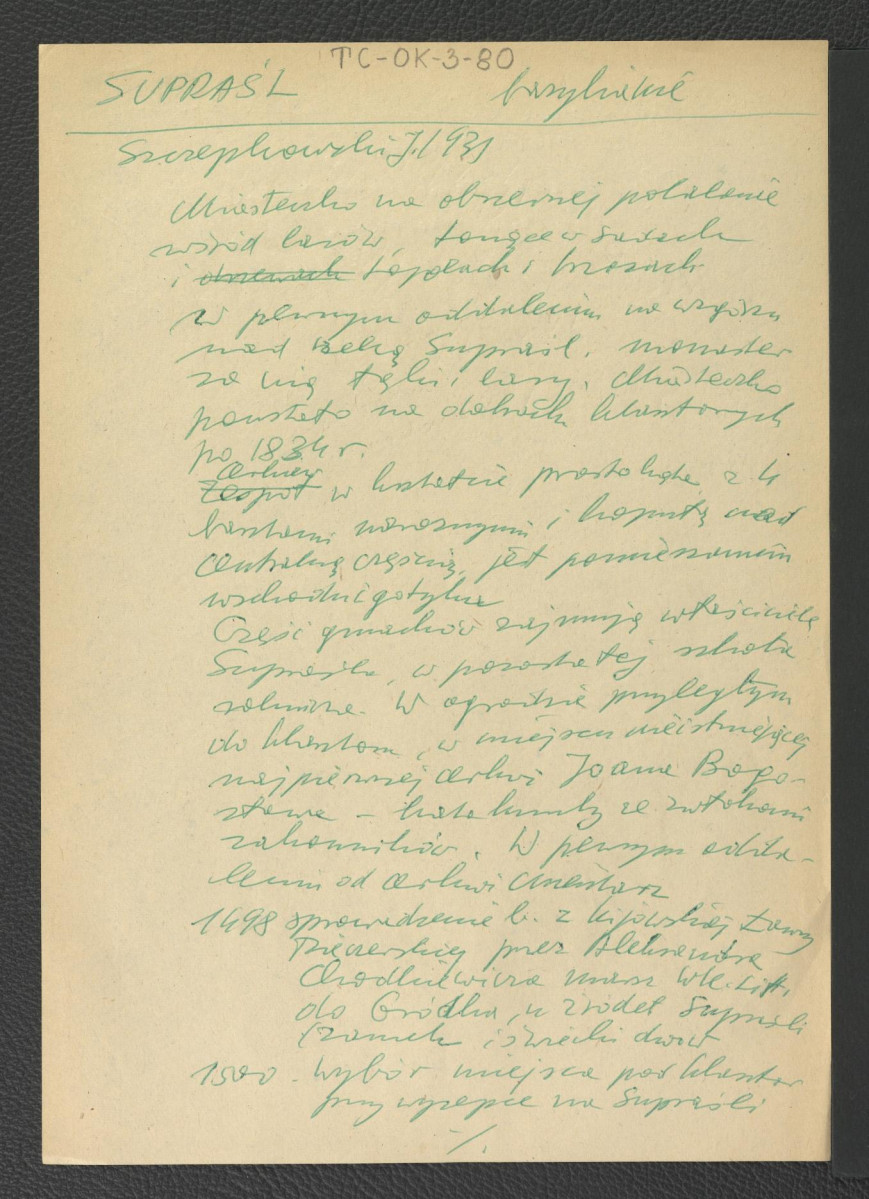 TC-OK-3-80
SUPRAŚL bazylianie
Szczepkowski J. 1931
Miasteczko na obszernej polalanie
wśród lasów, tonące w sadach
i drzewach topolach i brzozach
W pewnym oddaleniu na wzgórzu
nad rzeką Supraśl. monaster
za nią łąki i lasy. Miasteczko
powstało na dobrach klasztornych
po 1834 r.
Cerkiew
Zespół w kształcie prostokąta z 4
basztami narożnymi i kopułą nad
centralną częścią, jest pomieszaniem
wschodu i gotyku
Część gmachów zajmują właściciele
Supraśla, w pozostałej szkoła
rolnicza. W ogrodzie przyległym
do klasztoru, w miejscu nieistniejącej
najpierwszej cerkwi Joana Bogo-
słowa – katakumby ze zwłokami
zakonników. W pewnym odda-
leniu od cerkwi cmentarz
1498 sprowadzenie b. z kijowskiej Ławry
Pieczerskiej przez Aleksandra
Chodkiewicza marsz. Wlk. Lit.
do Gródka, u źródeł Supraśli
(zamek i świecki dwór
1500 - wybór miejsca pod klasztor
przy wysepce na Supraśli
-/.